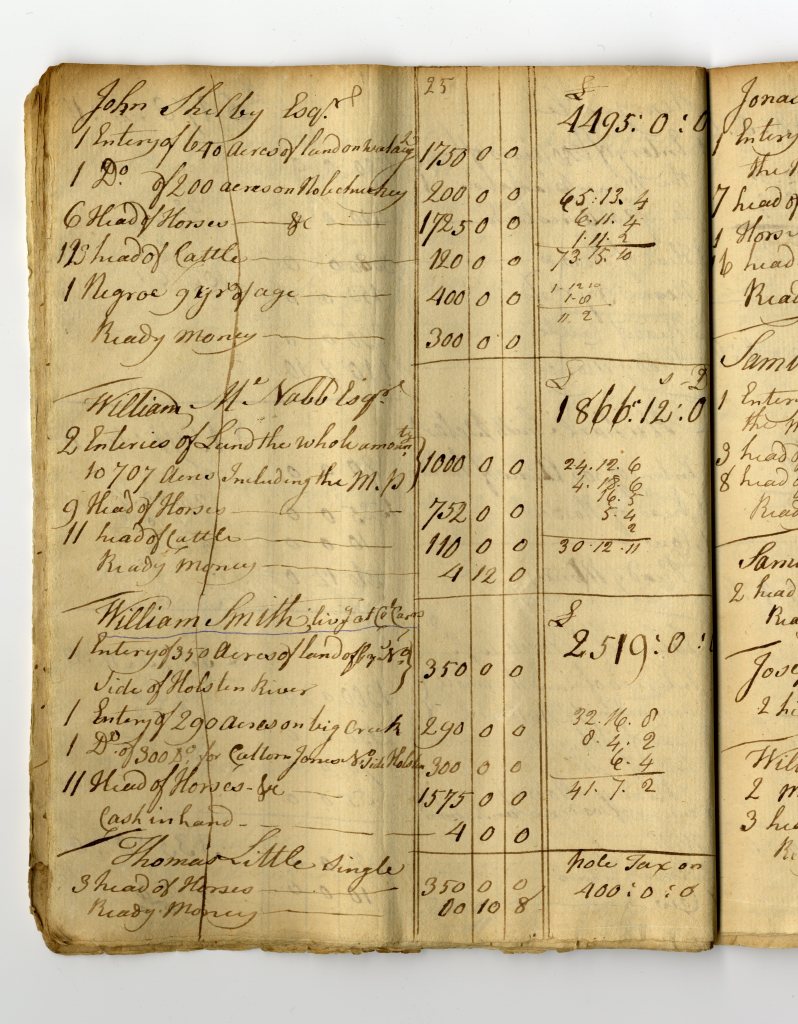 25
John Shelby Esqr. £
1 Entery of 640 acres of land on 1750 0 0 4495:0:0
1 Do. of 200 acres on Nolichuckey 200 0 0 65.13.4
6 Head of Horses &c 1725 0 0 6.11.4
1.11.2
12 head of Cattle 120 0 0 73.15.10
1 Negroe 9 yrs. of age 400 0 0 1.12.10
1.8
11 2
Ready Money 300 0 0
William Mc. Nabb Esqr. £ s D
1866:12:0
2 Enteries of Land the whole amountg.
to 707 Acres Including the M.P 1000 0 0 24.12.6
4.18.6
9 Head of Horses 752 0 0 16.5
5.4
2
11 head of Cattle 110 0 0 30.12.11
Ready Money 4 12 0
William Smith, livg. at Ct. Carns £
1 Entery of 350 Acres of land 350 0 0 2519:0:0
Side of Holsten River
1 Entery of 290 acres on big Creek 290 0 0 32.16.8
1 Do. of 300 Do. for Cutlorn Jones No. Side Holsten 300 0 0 8.4.2
6.4
11 Head of Horses &c 1575 0 0 41.7.2
Cash in hand 4 0 0
Thomas Little Single pole Tax on
3 head of Horses 350 0 0 400:0:0
Ready Money 00 10 8
Entery
the
7 head of
1 Horse
16 head
Ready
1 Entery
the
3 head of
8 head
Ready
2 head
2
3 head